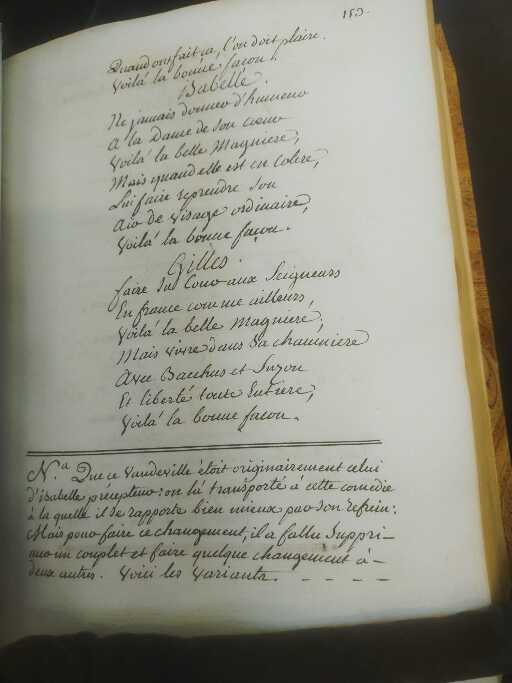 153.
Quand on fait ça, l'on doit plaire.
Voilà la bonne façon.
Isabelle.
Ne jamais donner d'humeur
A la Dame de son cœur
Voilà la belle Magniere;
Mais quand elle est en colere,
Lui faire reprendre son
Air de visage ordinaire,
Voilà la bonne façon.
Gilles.
faire Sa Cour aux Seigneurs
En france comme ailleurs,
Voilà la belle Magniere;
Mais vivre dans Sa chaumiere
Avec Bacchus et Suzon
Et liberté toute Entiere,
Voilà la bonne façon.
N.a Que ce Vaudeville étoit originairement celui
d'isabelle : on l'a transporté à cette comedie
à la quelle il se rapporte bien mieux par son refrein:
Mais pour faire ce changement, il a fallu Suppri-
mer un couplet et faire quelque changement à-
deux autres. Voici les Variants. - - - -